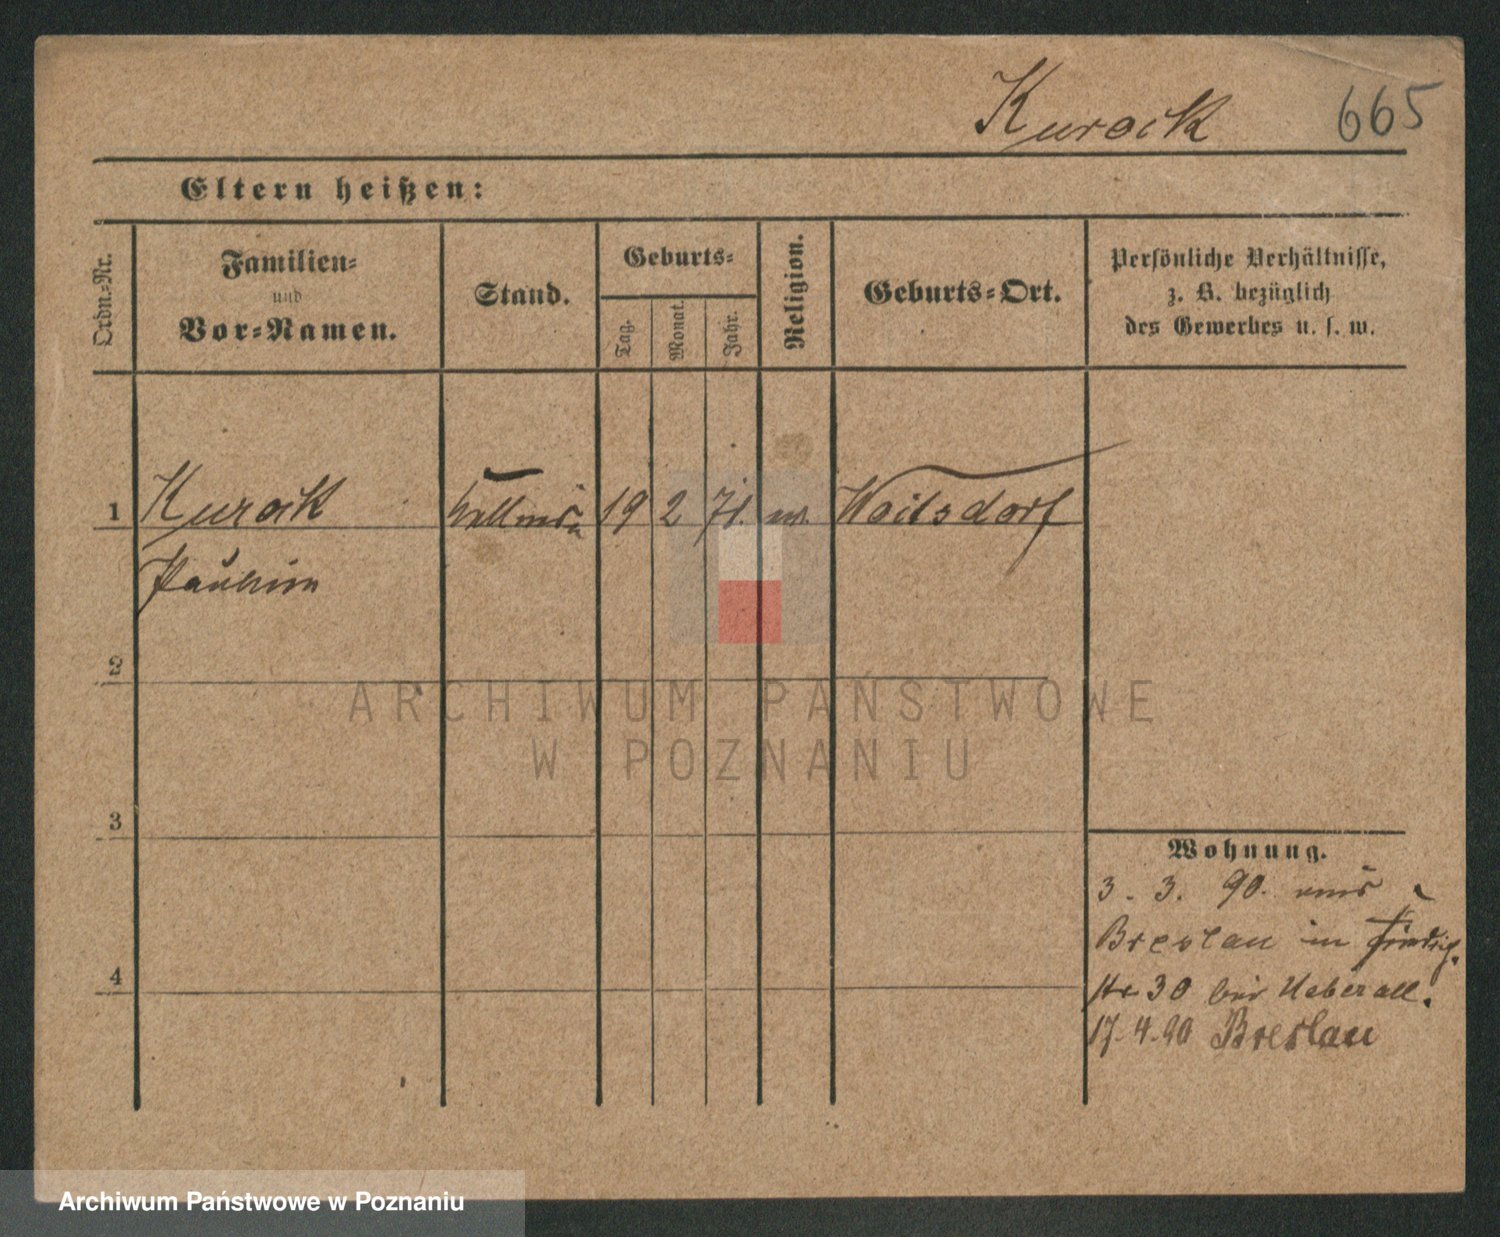 Kurock 665
Eltern heißen:
Ordn.-Nr.
Familien-
und
Vor-Namen.
Stand.
Geburts-
Tag.
Monat.
Jahr.
Religion.
Geburts-Ort.
Persönliche Verhältnisse,
z. B. bezüglich
des Gewerbes u. s. w.
1 Kurock 19 2 71. Woitsdorf
2
ARCHIWUM PAŃSTWOWE
W POZNANIU
3
Wohnung.
3. 3. 90. aus
Breslau in
30 bei Ueberall.
4
17.4.90 Breslau
Archiwum Państwowe w Poznaniu